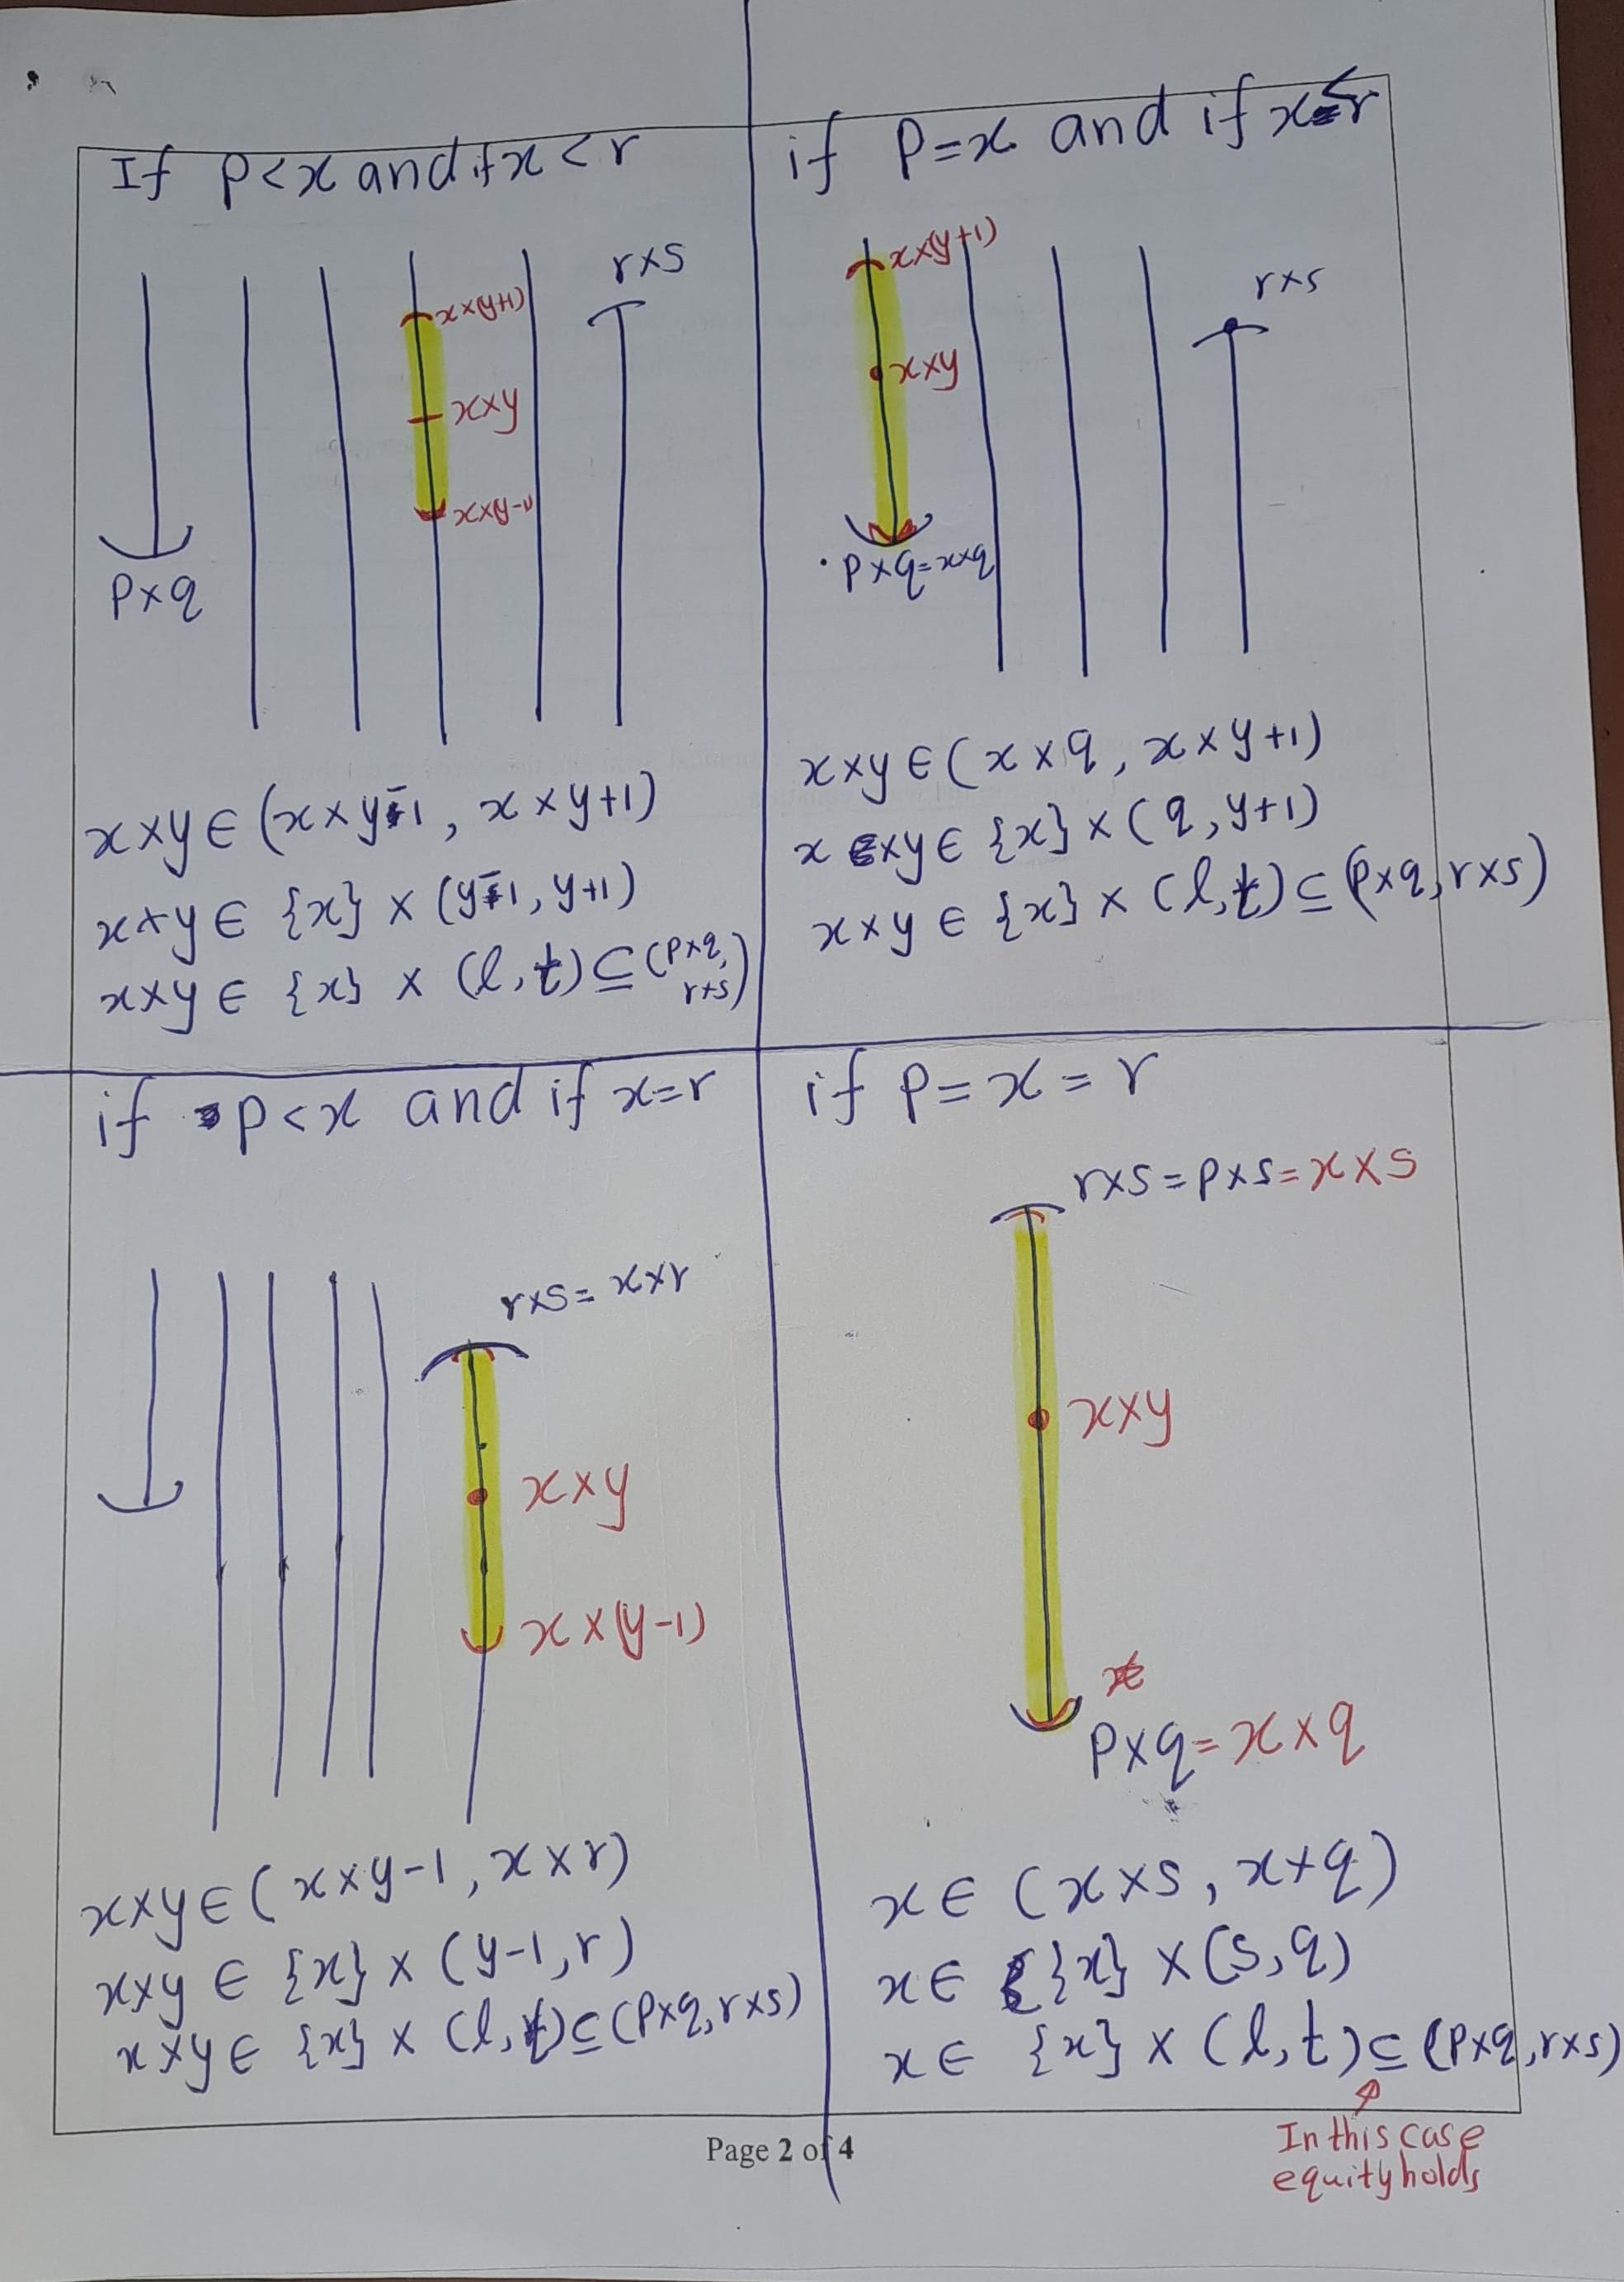 If p<x and if x<r
x×(y+1)
r×s
x×y
x×(y-1)
p×q
x×y ∈ (x×y-1, x×y+1)
x×y ∈ {x} × (y-1, y+1)
x×y ∈ {x} × (l,t) ⊆ (p×q,
r×s)
if p=x and if x<r
x×(y+1)
r×s
x×y
p×q=x×q
x×y ∈ (x×q, x×y+1)
x×y ∈ {x} × (q, y+1)
x×y ∈ {x} × (l,t) ⊆ (p×q, r×s)
if p<x and if x=r
r×s = x×r
x×y
x×(y-1)
x×y ∈ (x×y-1, x×r)
x×y ∈ {x} × (y-1, r)
x×y ∈ {x} × (l,t) ⊆ (p×q, r×s)
if p=x=r
r×s = p×s = x×s
x×y
p×q = x×q
x ∈ (x×s, x×q)
x ∈ {x} × (s,q)
x ∈ {x} × (l,t) ⊆ (p×q, r×s)
In this case
equity holds
Page 2 of 4